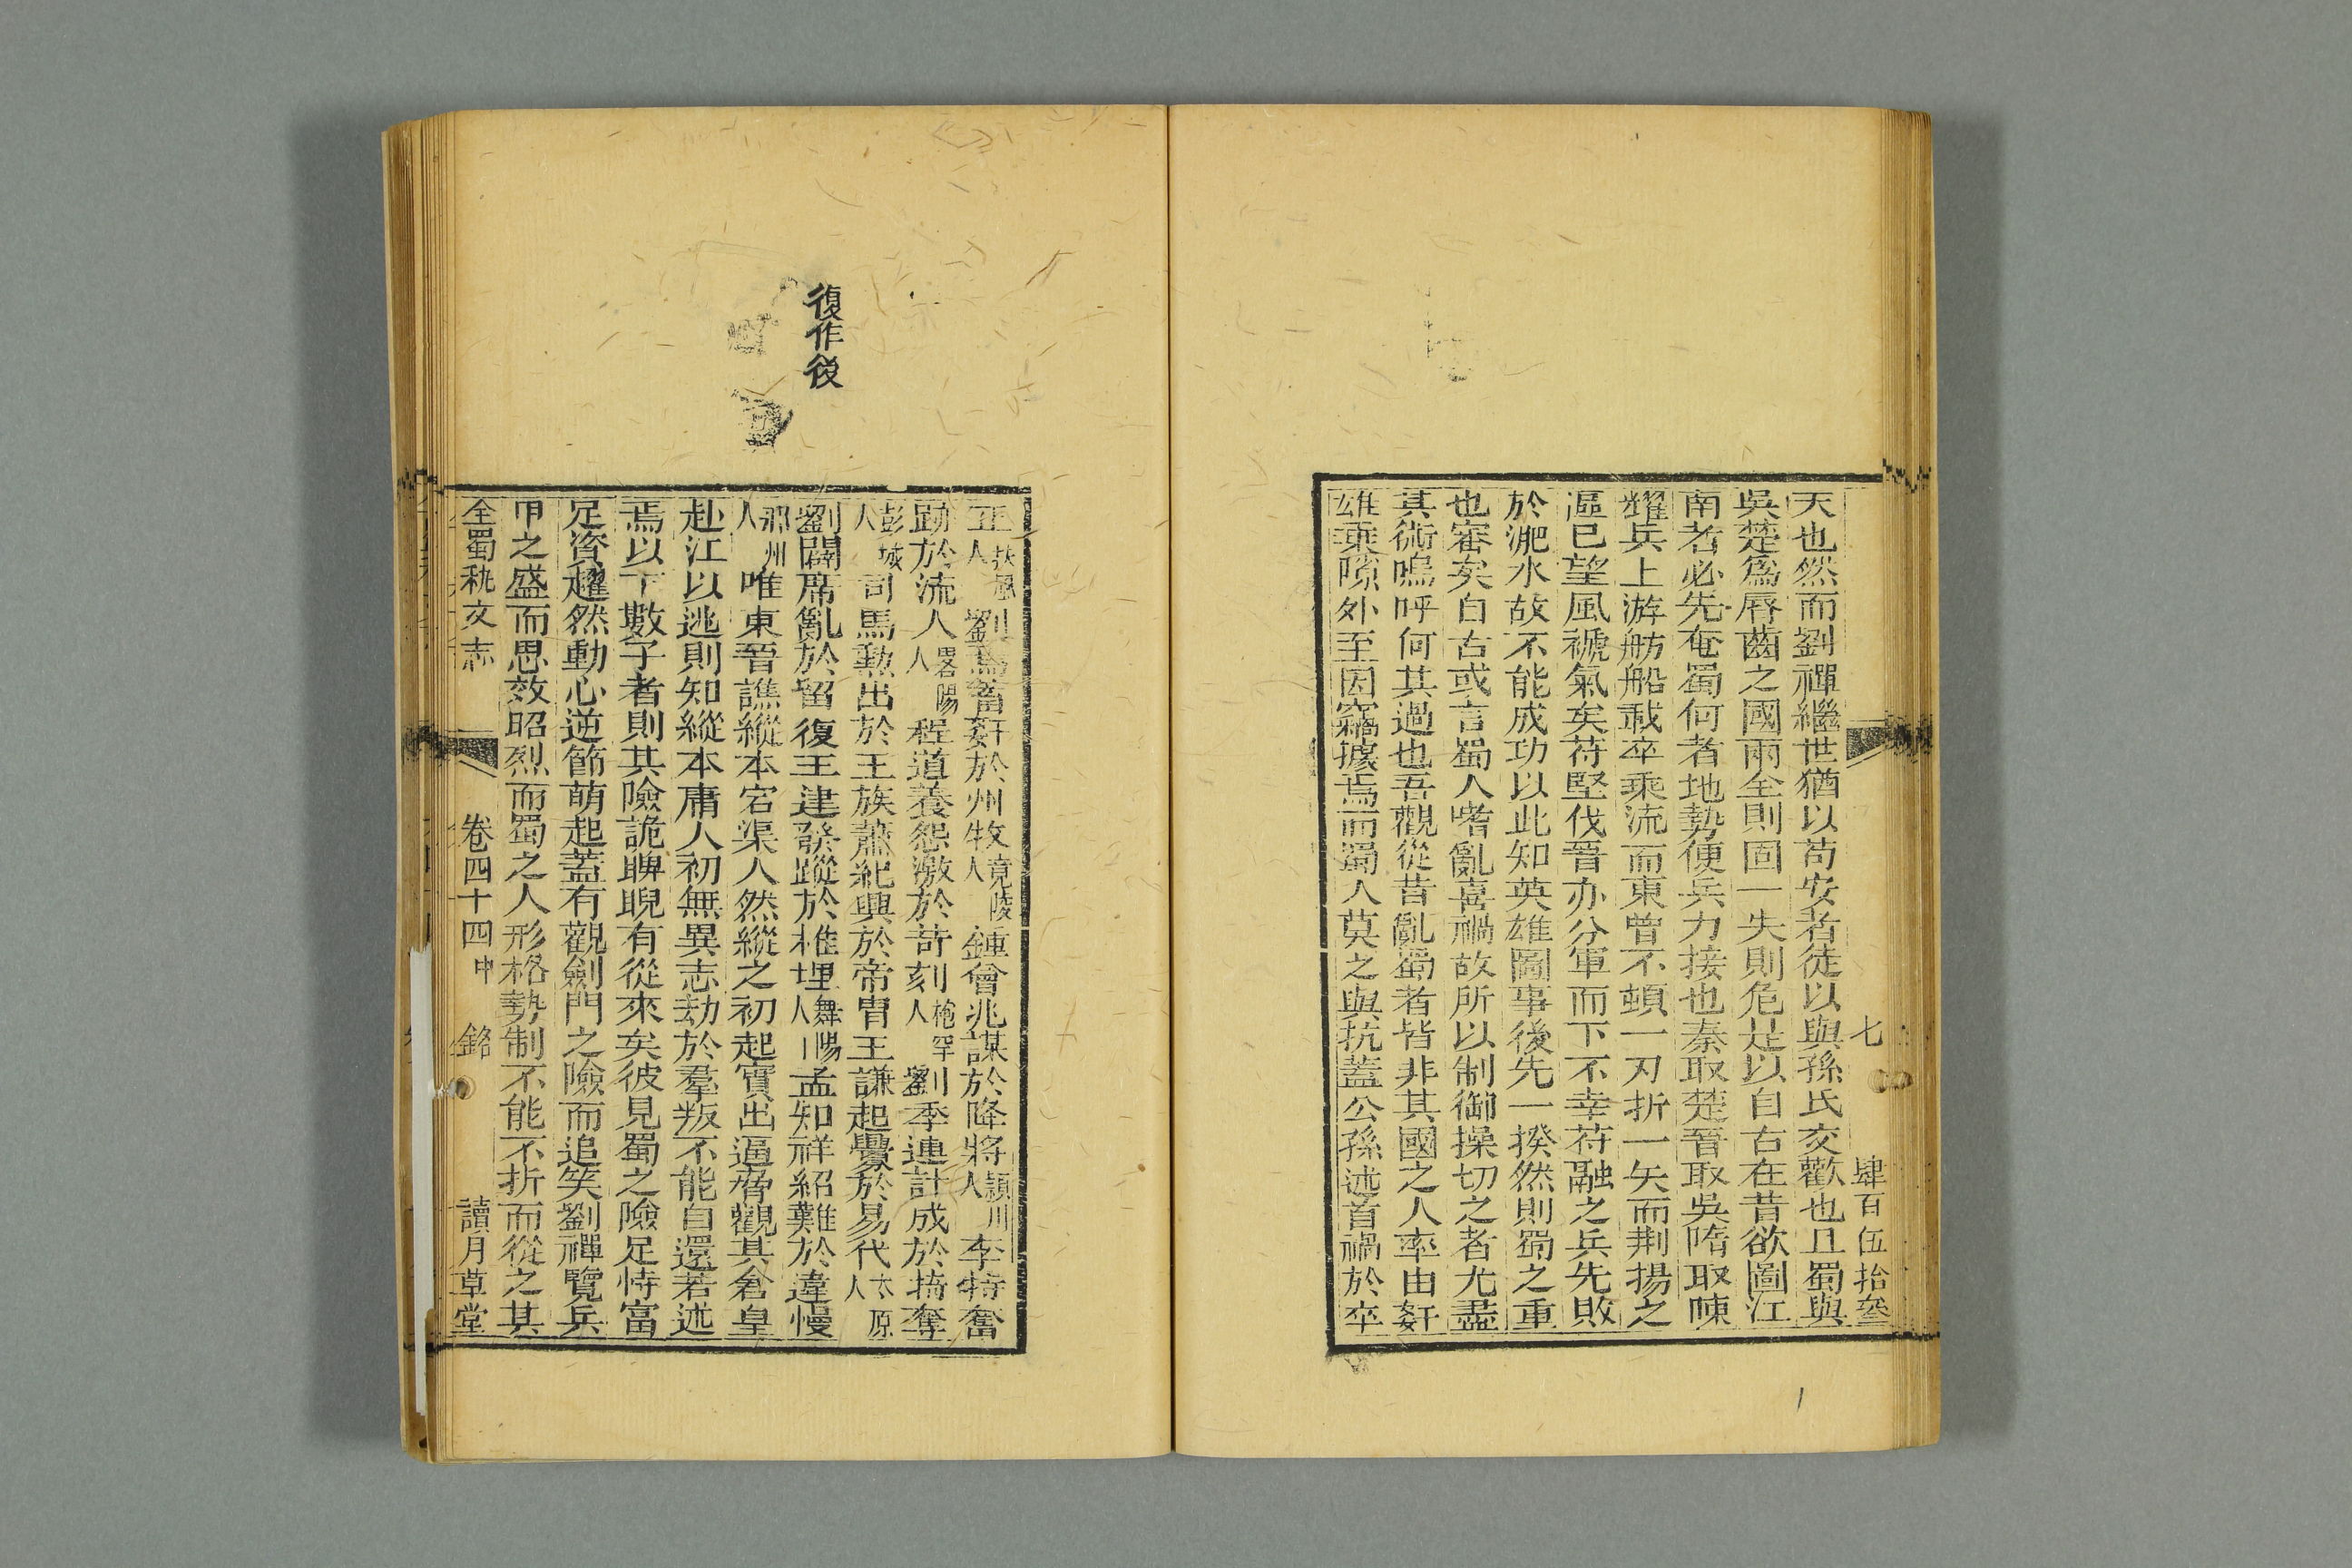 七 肆百伍拾叁
天也然而劉禪繼世猶以苟安者徒以與孫氏交歡也且蜀與
吳楚爲脣齒之國兩全則固一失則危是以自古在昔欲圖江
南者必先奄蜀何者地勢便兵力接也秦取楚晉取吳隋取陳
耀兵上游舫船載卒乘流而東曾不頓一刃折一矢而荆揚之
漚已望風褫氣矣苻堅伐晉亦分軍而下不幸苻融之兵先敗
於淝水故不能成功以此知英雄圖事後先一揆然則蜀之重
也審矣自古或言蜀人嗜亂喜禍故所以制御操切之者尤盡
其術嗚呼何其過也吾觀從昔亂蜀者皆非其國之人率由奸
雄乘隙外至因竊據焉而蜀人莫之與抗蓋公孫述首禍於卒
復作後
正扶風人劉焉畜奸於州牧竟陵人鍾會兆謀於降將潁川人李特奮
跡於流人畧陽人程道養怨激於苛刻枹罕人劉季連計成於掎奪
彭城人司馬勳出於王族蕭紀興於帝冑王謙起釁於易代太原人
劉闢席亂於留復王建發蹤於椎埋舞陽人孟知祥紹難於違慢
邢州人唯東晉譙縱本宕渠人然縱之初起實出逼脅觀其倉皇
赴江以逃則知縱本庸人初無異志劫於羣叛不能自還若述
焉以下數子者則其險詭睥睨有從來矣彼見蜀之險足恃富
足資趯然動心逆節萌起蓋有觀劍門之險而追笑劉禪覽兵
甲之盛而思效昭烈而蜀之人形格勢制不能不折而從之其
全蜀秇文志 卷四十四 中 銘 讀月草堂